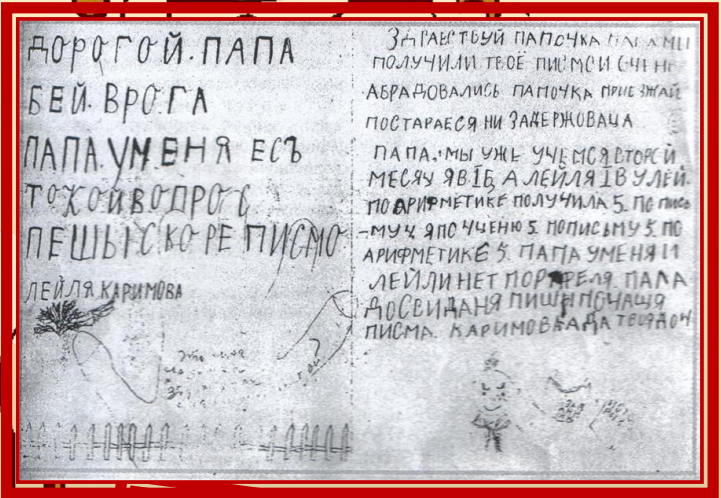 ДОРОГОЙ. ПАПА
БЕЙ. ВРОГА
ПАПА. УМЕНЯ ЕСЪ
ТОКОЙ ВОПРОС
ПЕШЫ СКОРЕ ПИСМО
ЛЕЙЛЯ КАРИМОВА
Это моя
ЗДРАВСТВУЙ ПАПОЧКА ПАПА МЫ
ПОЛУЧИЛИ ТВОЕ ПИСМО И ОЧЕНЬ
АБРАДОВАЛИСЬ ПАПОЧКА ПРИЕЗЖАЙ
ПОСТАРАЕСЯ НИ ЗАДЕРЖОВАЦА
ПАПА. МЫ УЖЕ УЧЕМСЯ ВТОРОЙ
МЕСЯЧ Я В IБ А ЛЕЙЛЯ I В УЛЕЙ.
ПО АРИФМЕТИКЕ ПОЛУЧИЛА 5. ПО ПИСЬ
-МУ 4 Я ПО ЧЧЕНЮ 5. ПОПИСЬМУ 5. ПО
АРИФМЕТИКЕ 5. ПАПА УМЕНЯ И
ЛЕЙЛИ НЕТ ПОРТФЕЛЯ. ПАПА
ДОСВИДАНЯ ПИШИ ПОЧАЩЯ
ПИСМА. КАРИМОВА АДА ТВОЯ ДОЧ